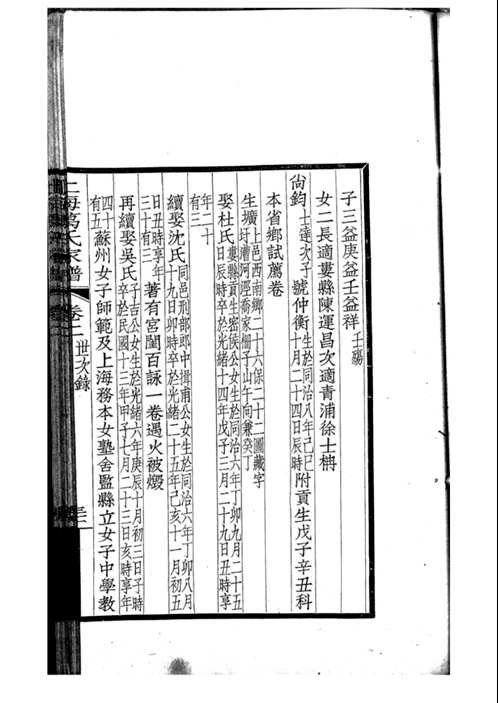 子三益庚益壬益祥壬殤
女二長適婁縣陳運昌次適青浦徐士柟
尙鈞士達次子號仲衡生於同治八年己巳十月二十四日辰時附貢生戊子辛丑科
本省鄉試薦卷
生壙上邑西南鄉二十六保二十二圖藏字圩漕河涇喬家細子山午向兼癸丁
娶杜氏婁縣貢生密侯公女生於同治六年丁卯九月二十五日辰時卒於光緒十四年戊子三月二十九日丑時享
年二十有二
續娶沈氏同邑刑部郎中揖甫公女生於同治六年丁卯八月十九日卯時卒於光緒二十五年己亥十一月初五
日丑時享年三十有三著有宮閨百詠一卷遇火被燬
再續娶吳氏子吉公女生於光緒六年庚辰十月初三日子時卒於民國十三年甲子十月二十三日亥時享年
四十有五蘇州女子師範及上海務本女塾舍監縣立女子中學教
上海葛氏家譜
卷二
世次錄